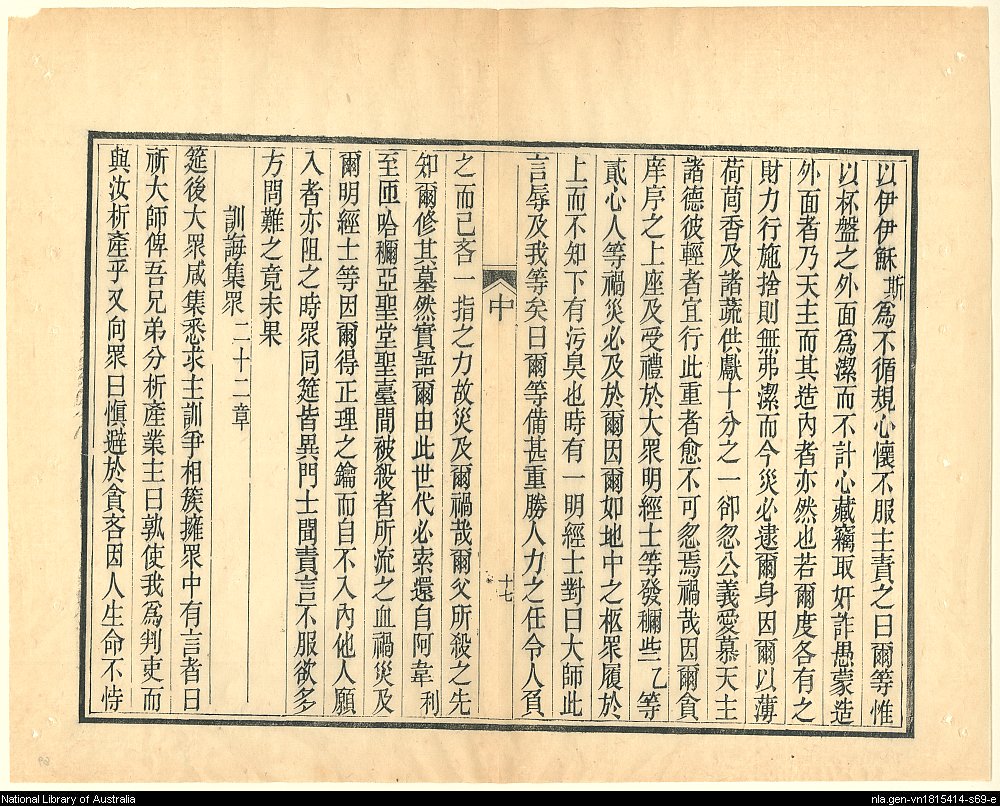 以伊伊穌斯爲不循規心懷不服主責之曰爾等惟
以杯盤之外面爲潔而不計心藏竊取奸詐愚蒙造
外面者乃天主而其造內者亦然也若爾度各有之
財力行施捨則無弗潔而今災必逮爾身因爾以薄
荷茴香及諸蔬供獻十分之一卻忽公義愛慕天主
諸德彼輕者宜行此重者愈不可忽焉禍哉因爾貪
庠序之上座及受禮於大眾明經士等發穪些乙等
貳心人等禍災必及於爾因爾如地中之柩眾履於
上而不知下有污臭也時有一明經士對曰大師此
言辱及我等矣曰爾等備甚重勝人力之任令人負
中
十七
之而己吝一指之力故災及爾禍哉爾父所殺之先
知爾修其墓然實語爾由此世代必索還自阿韋利
至匝哈穪亞聖堂聖臺間被殺者所流之血禍災及
爾明經士等因爾得正理之鑰而自不入內他人願
入者亦阻之時眾同筵皆異門士聞責言不服欲多
方問難之竟未果
訓誨集眾 二十二章
筵後大眾咸集悉求主訓爭相簇擁眾中有言者曰
祈大師俾吾兄弟分析產業主曰孰使我爲判吏而
與汝析產乎又向眾曰慎避於貪吝因人生命不恃
National Library of Australia
nla.gen-vn1815414-s69-e